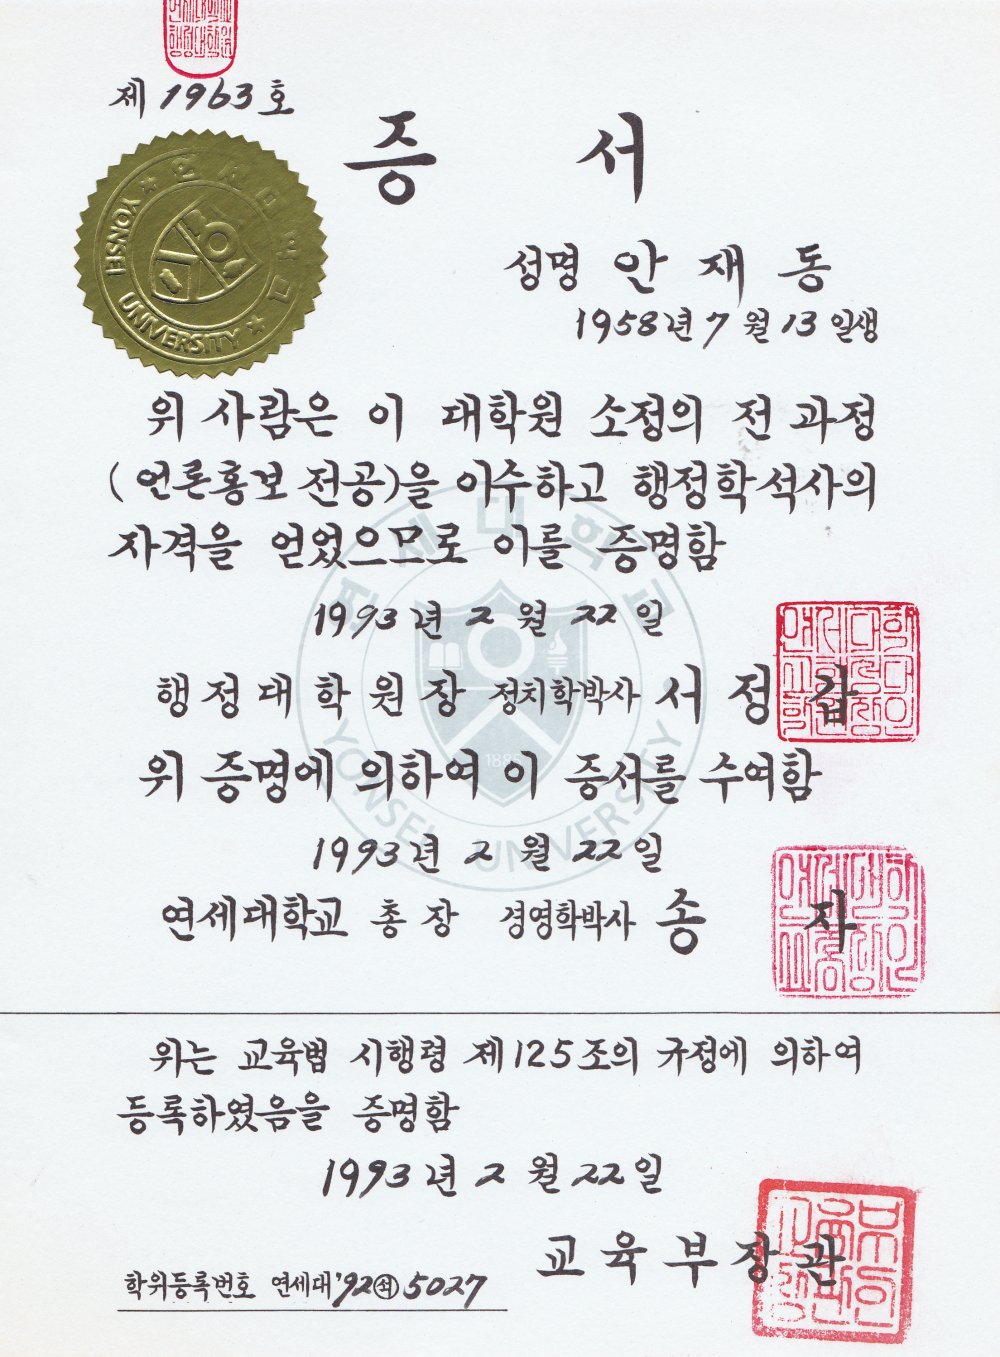 제 1963 호
증 서
연세대학교
YONSEI UNIVERSITY
성명 안 재 동
1958년 7 월 13 일생
위 사람은 이 대학원 소정의 전 과정
(언론홍보 전공)을 이수하고 행정학석사의
자격을 얻었으므로 이를 증명함
1993년 2 월 22 일
행 정 대 학 원 장 정치학박사 서 정 갑
위 증명에 의하여 이 증서를 수여함
1993년 2 월 22 일
연세대학교 총 장 경영학박사 송 자
연세대학교
1885
YONSEI UNIVERSITY
위는 교육법 시행령 제125조의 규정에 의하여
등록하였음을 증명함
1993년 2 월 22 일
교 육 부 장 관
학위등록번호 연세대'92㊛5027